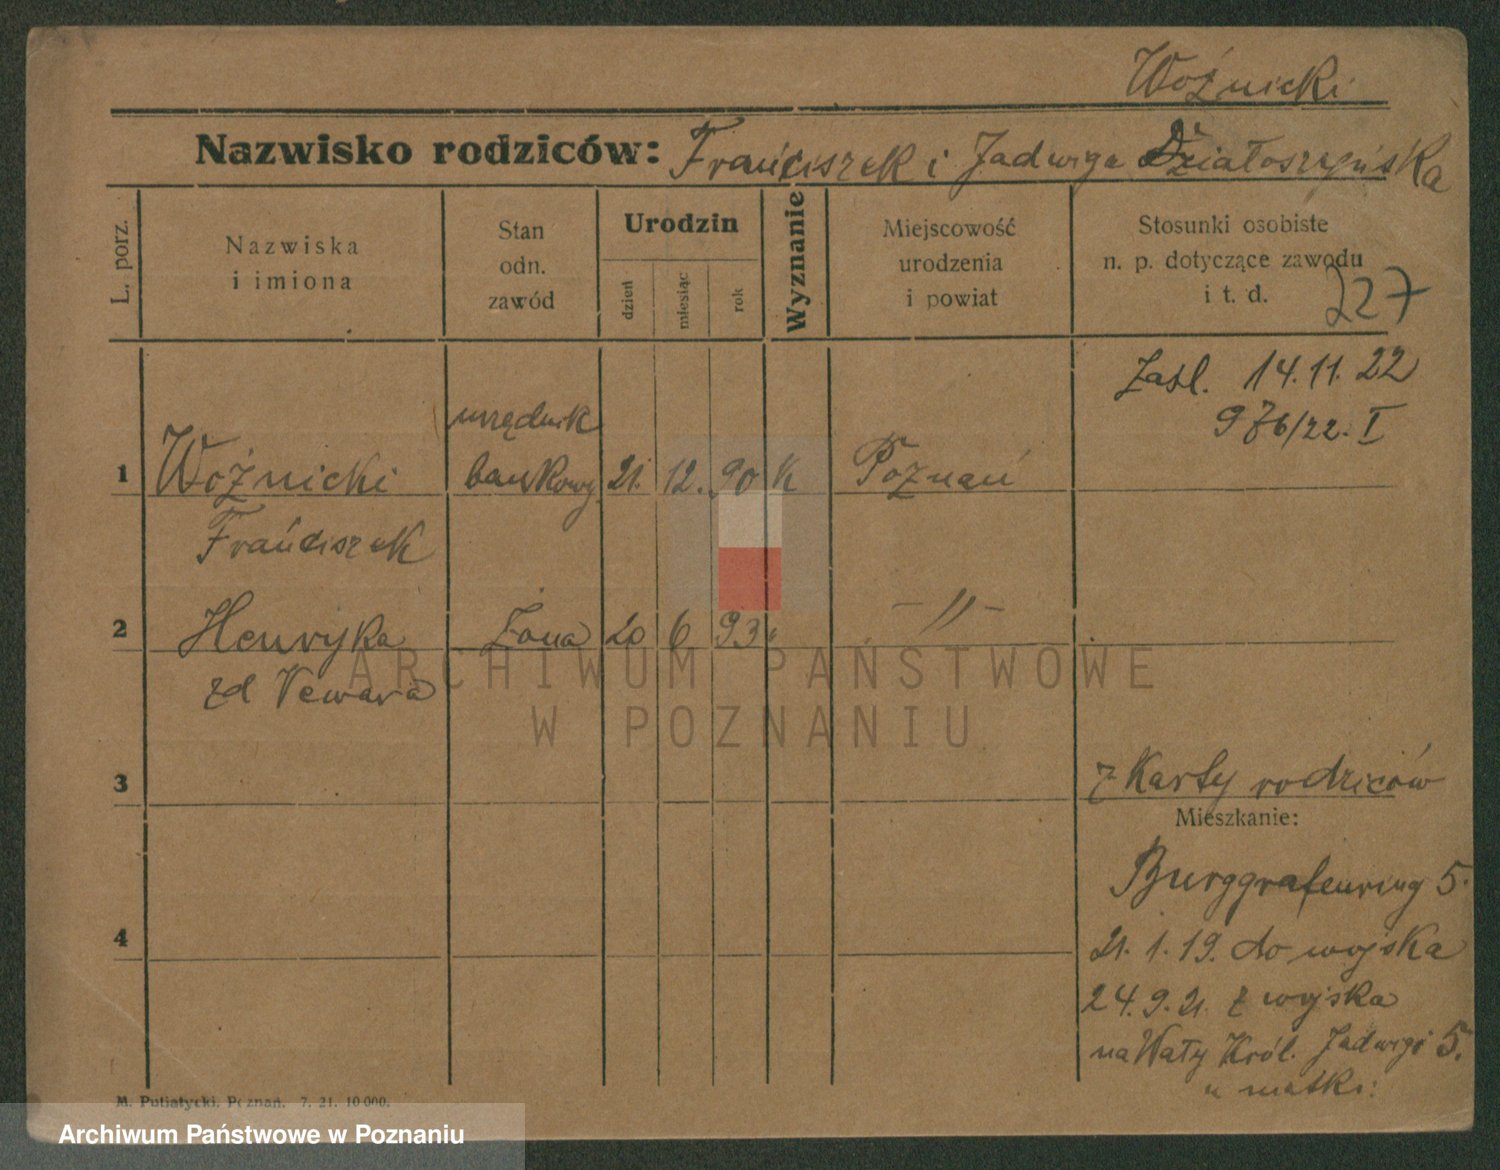 Woźnicki
Nazwisko rodziców: Franciszek i Jadwiga Działoszyńska
L. porz.
Nazwiska
i imiona
Stan
odn.
zawód
Urodzin
dzień
miesiąc
rok
Wyznanie
Miejscowość
urodzenia
i powiat
Stosunki osobiste
n. p. dotyczące zawodu
i t. d.
227
Zaśl. 14.11.22
976/22. I
urzędnik
1 Woźnicki bankowy 21. 12. 90 K Poznań
Franciszek
2 Henryka Żona 20 6 93 " —"—
zd
3
z Karty rodziców
Mieszkanie:
Burggrafenring 5.
4
21. 1. 19. do wojska
24. 9. 21. z wojska
na Wały Król. Jadwigi 5.
u matki:
M. Putiatycki, Poznań. 7. 21. 10 000.
ARCHIWUM PAŃSTWOWE
W POZNANIU
Archiwum Państwowe w Poznaniu